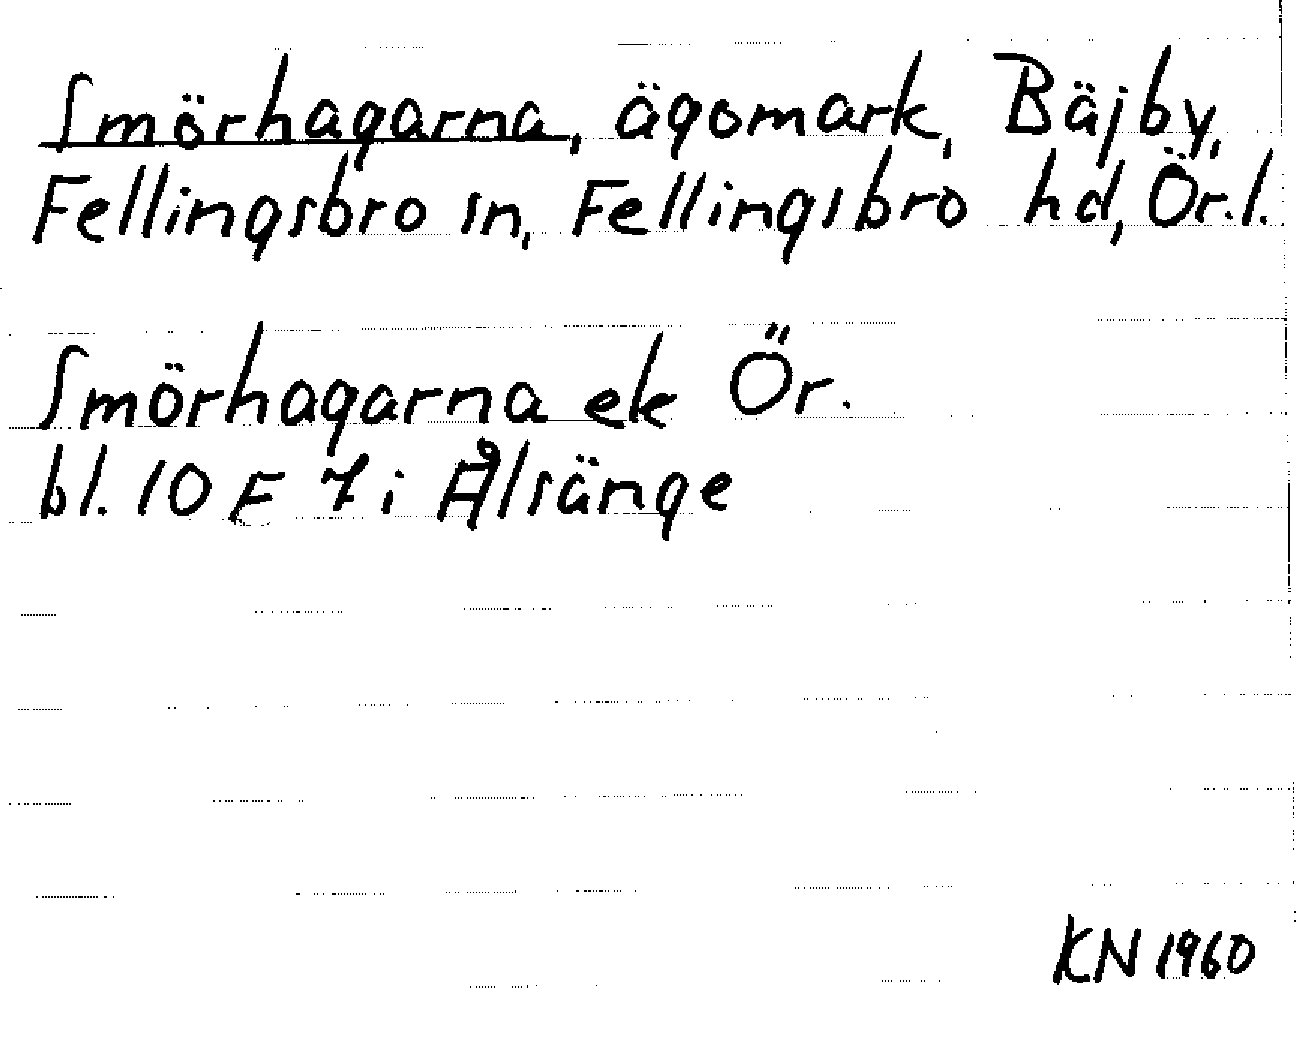 Smörhagarna, ägomark, Bäjby,
Fellingsbro sn, Fellingsbro hd, Ör.l.
Smörhagarna ek Ör.
bl. 10 F 7 i Ålsänge
KN 1960